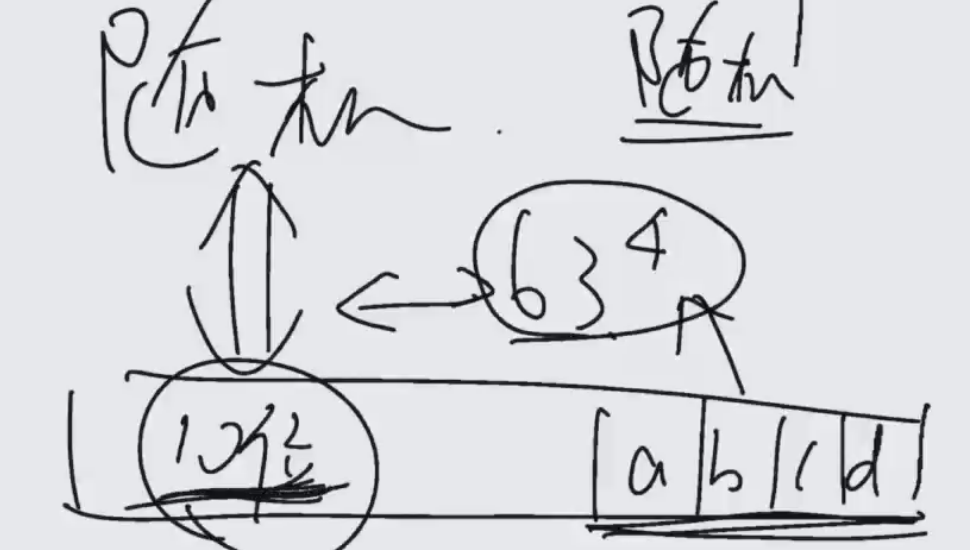 随机 随机
63⁴
10位 a b c d